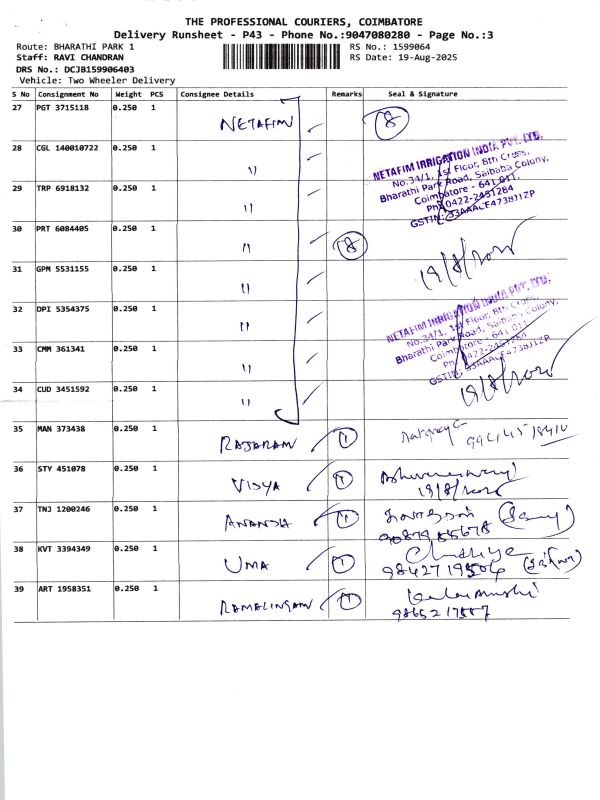 THE PROFESSIONAL COURIERS, COIMBATORE
Delivery Runsheet - P43 - Phone No.:9047080280 - Page No.:3
Route: BHARATHI PARK 1 RS No.: 1599064
Staff: RAVI CHANDRAN RS Date: 19-Aug-2025
DRS No.: DCJB159906403
Vehicle: Two Wheeler Delivery
S No Consignment No Weight PCS Consignee Details Remarks Seal & Signature
27 PGT 3715118 0.250 1 NETAFIM 8
28 CGL 140010722 0.250 1 "
NETAFIM IRRIGATION INDIA PVT. LTD.
No.34/1, 1st Floor, 8th Cross,
Bharathi Park Road, Saibaba Colony,
Coimbatore - 641 011.
Ph: 0422-2451284
GSTIN: 33AAACE4738J1ZP
29 TRP 6918132 0.250 1 "
30 PRT 6084405 0.250 1 " 8
19/8/2025
31 GPM 5531155 0.250 1 "
32 DPI 5354375 0.250 1 "
NETAFIM IRRIGATION INDIA PVT. LTD.
No.34/1, 1st Floor, 8th Cross,
Bharathi Park Road, Saibaba Colony,
Coimbatore - 641 011
Ph: 0422-2451284
GSTIN: 33AAACE4738J1ZP
33 CMM 361341 0.250 1 "
34 CUD 3451592 0.250 1 "
19/8/2025
35 MAN 373438 0.250 1 RAJARAM 1
36 STY 451078 0.250 1 VIDYA 1 Bhuvaneswari
19/8/2025
37 TNJ 1200246 0.250 1 1
38 KVT 3394349 0.250 1 UMA 1
9842719504
39 ART 1958351 0.250 1 RAMALINGAM 1